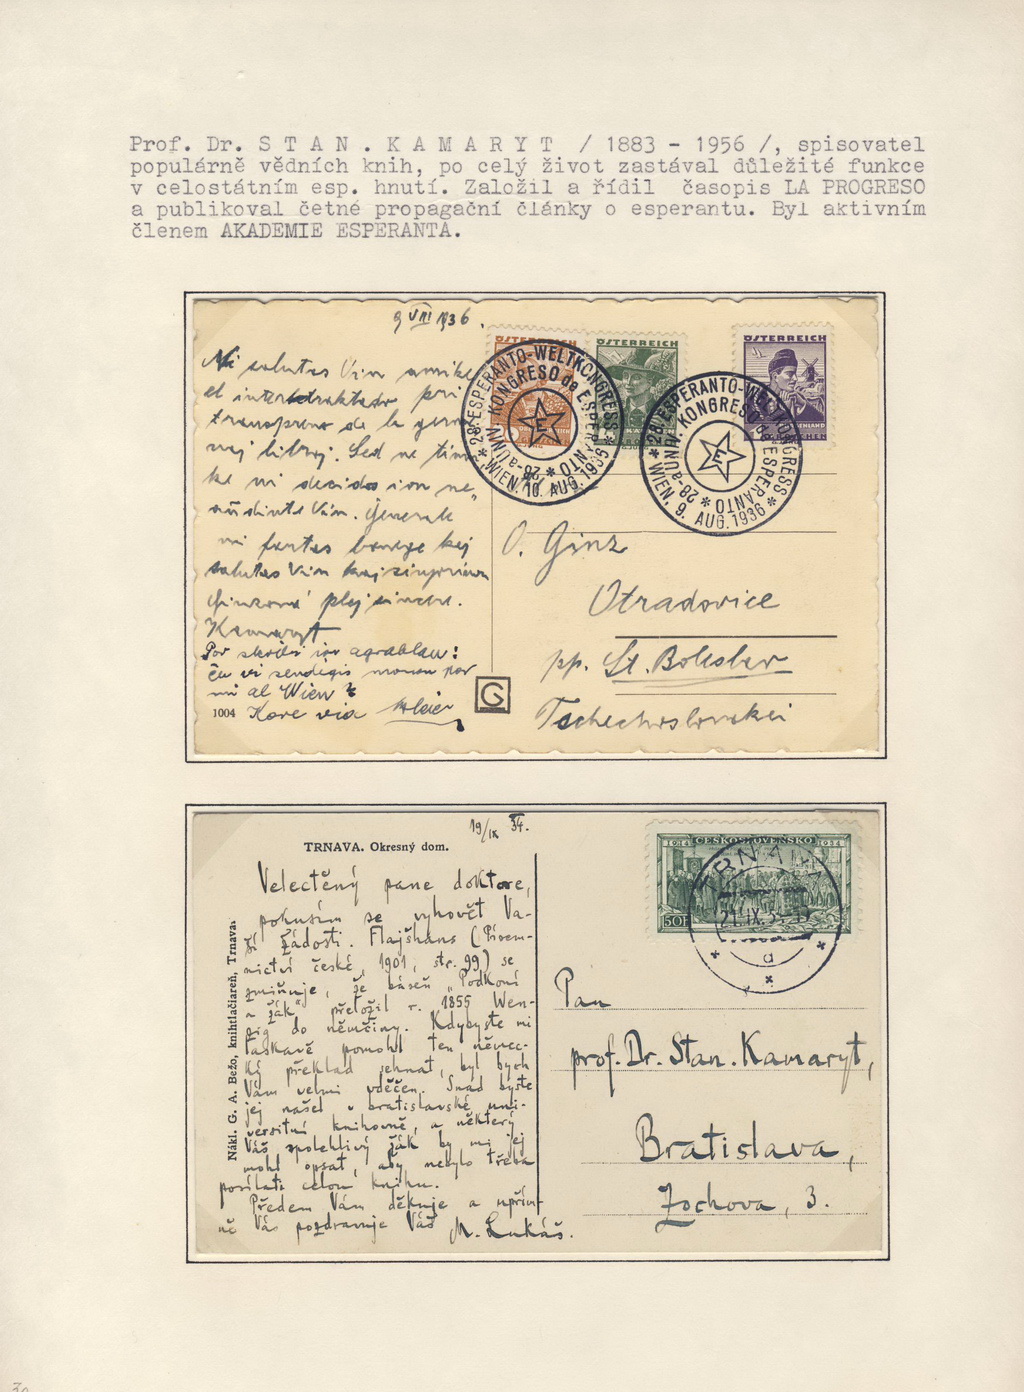 Prof. Dr. S T A N . K A M A R Y T / 1883 - 1956 /, spisovatel
populárně vědních knih, po celý život zastával důležité funkce
v celostátním esp. hnutí. Založil a řídil časopis LA PROGRESO
a publikoval četné propagační články o esperantu. Byl aktivním
členem AKADEMIE ESPERANTA.
9 VIII 1936.
ÖSTERREICH
ÖSTERREICH
ÖSTERREICH
* 28. ESPERANTO-WELTKONGRESS *
28-a UNIV. KONGRESO de ESPERANTO *
WIEN, 10. AUG. 1936
* 28. ESPERANTO-WELTKONGRESS *
28-a UNIV. KONGRESO de ESPERANTO *
WIEN, 9. AUG. 1936
E
E
Mi salutas Vin amike
el pri
de la
libroj. Sed ne
ke ni decidos ion
Vin. Ĝenerale
mi fartas bonege kaj
salutas Vin kaj
plej sincere.
Kamaryt
ion agrablan!
ĉu vi sendigis monon por
mi al Wien?
Kore via
1004
G
O. Ginz
Otradovice
pp. St. Boleslav
Tschechoslowakei
19/IX 34.
TRNAVA. Okresný dom.
Nákl. G. A. Bežo, knihtlačiareň, Trnava.
ČESKOSLOVENSKO
1914
1934
50h
TRNAVA
21.IX.34
a
Velectěný pane doktore,
pokusím se vyhovět Va-
ší žádosti. Flajšhans (Písem-
nictví české, 1901, str. 99) se
zmiňuje, že báseň „Podkoní
a žák“ přeložil r. 1855 Wen-
zig do němčiny. Kdybyste mi
laskavě pomohl ten němec-
ký překlad sehnat, byl bych
Vám velmi vděčen. Snad byste
jej našel v bratislavské uni-
versitní knihovně, a některý
Váš spolehlivý žák by mi jej
mohl opsat, aby nebylo třeba
posílati celou knihu.
Předem Vám děkuje a upřím-
ně Vás pozdravuje Váš M. Lukáš.
Pan
prof. Dr. Stan. Kamaryt,
Bratislava,
Zochova, 3.